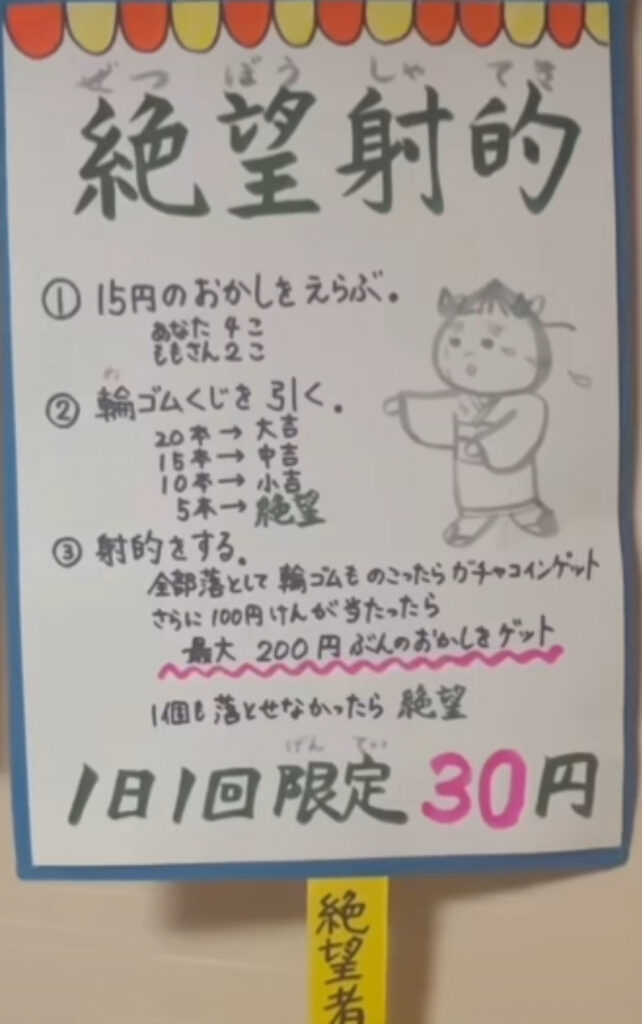 ぜつ ぼう しゃ てき
絶望射的
① 15円のおかしをえらぶ。
あなた 4こ
ももさん 2こ
わ
② 輪ゴムくじを引く。
20本→大吉
15本→中吉
10本→小吉
5本→絶望
③ 射的をする。
全部落として輪ゴムものこったらガチャコインゲット
さらに100円けんが当たったら
最大 200円ぶんのおかしをゲット
1個も落とせなかったら 絶望
げん てい
1日1回限定30円
絶望者